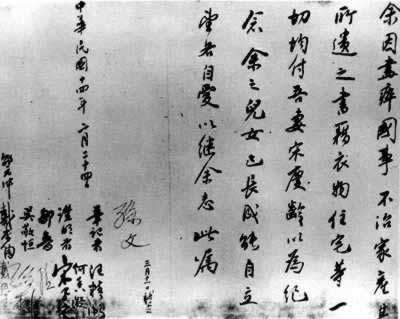 余因盡瘁國事不治家產其
所遺之書籍衣物住宅等一
切均付吾妻宋慶齡以為紀
念余之兒女已長成能自立
望各自愛以继余志此属
孫文
三月十一日補簽
中華民國十四年二月二十四
筆記者 汪精衛
證明者 宋子文
何香凝
邵元冲
戴恩賽
吳敬恒